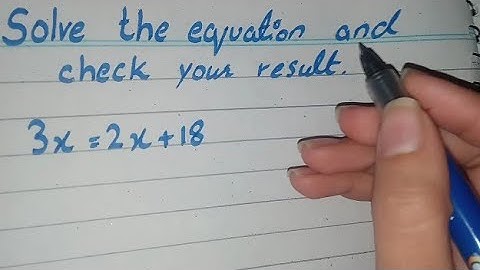 Solve the equation and
check your result.
3x = 2x + 18